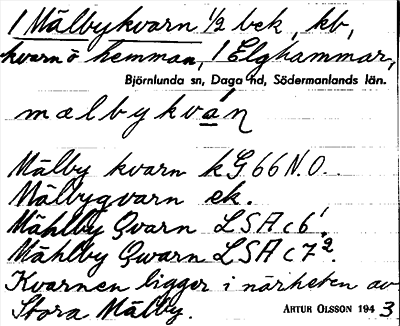 / Mälbykvarn ½ bek, kb,
kvarn ö hemman, / Elghammar,
Björnlunda sn, Daga hd, Södermanlands län.
mælbykván
Mälby kvarn kG66N.O.
Mälbyqvarn ek.
Mählby Qvarn LSA c 6¹.
Mählby Qwarn LSA c 7².
Kvarnen ligger i närheten av
Stora Mälby.
ARTUR OLSSON 1943